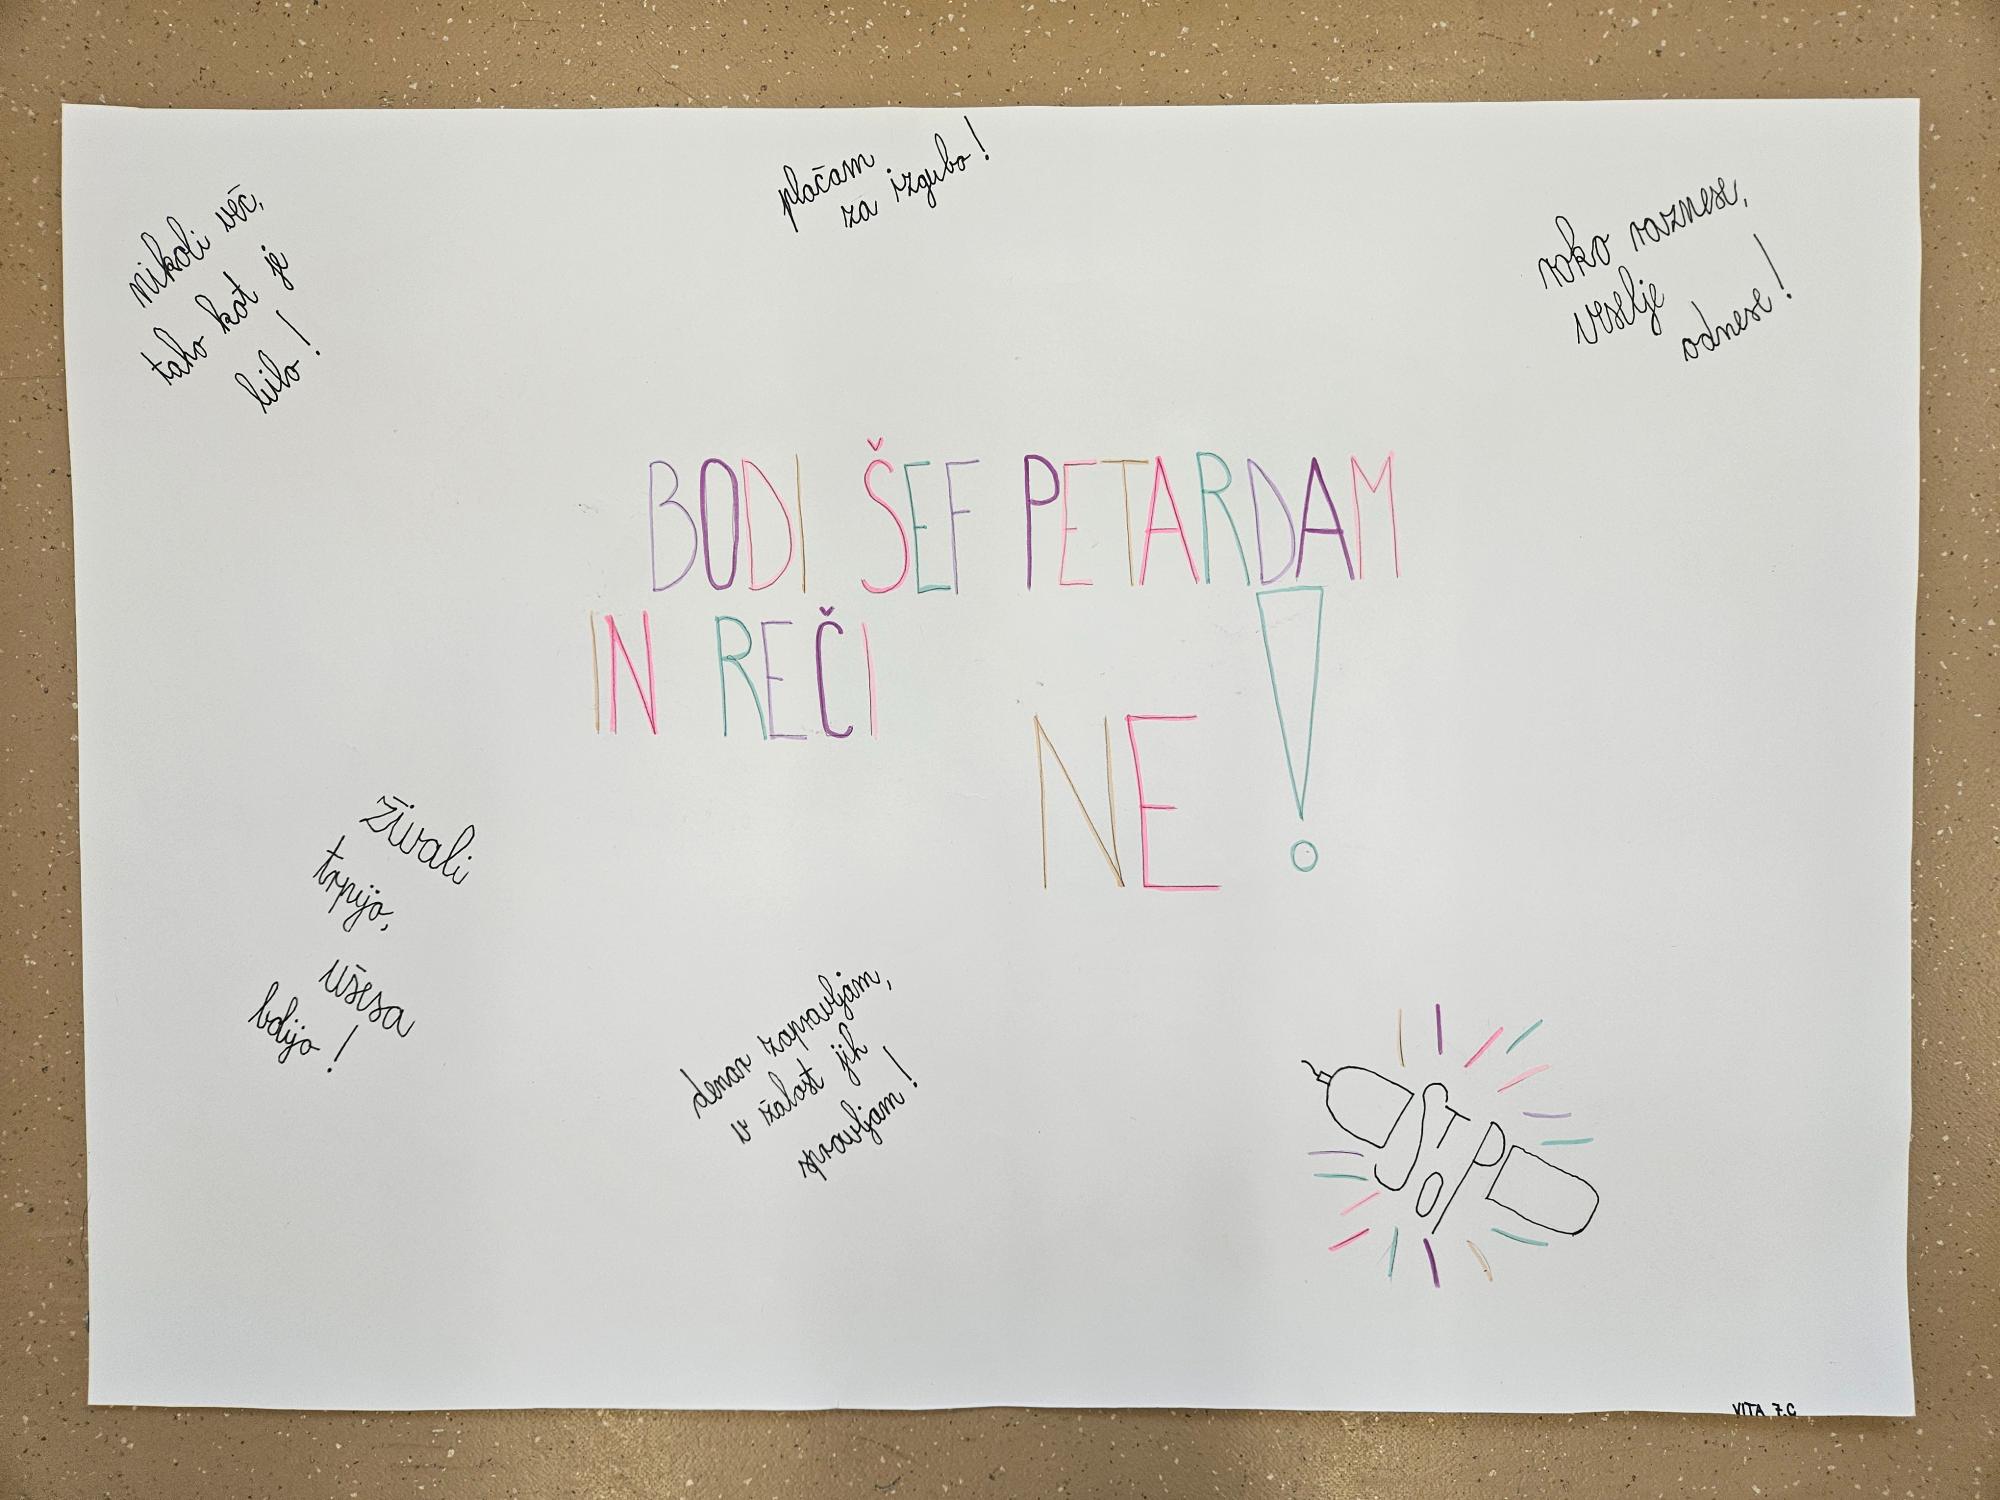 nikoli več,
tako kot je
bilo!
plačam
za izgubo!
roko raznese,
veselje
odnese!
BODI ŠEF PETARDAM
IN REČI
NE!
živali
trpijo,
ušesa
bdijo!
denar zapravljam,
v žalost jih
spravljam!
STOP
VITA 7.C